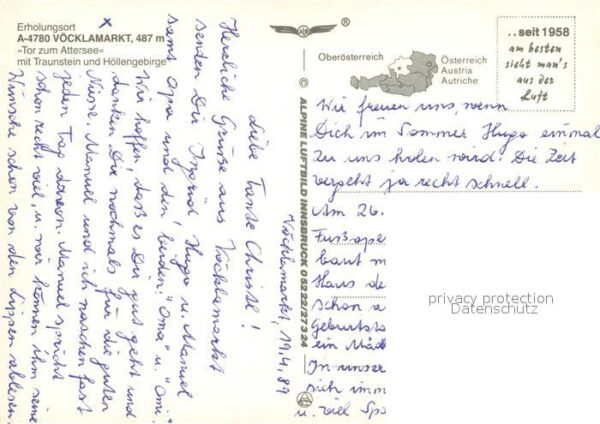 Erholungsort
A-4780 VÖCKLAMARKT, 487 m
»Tor zum Attersee«
mit Traunstein und Höllengebirge
Oberösterreich
Österreich
Austria
Autriche
..seit 1958
am besten
sieht man's
aus der
Luft
© ALPINE LUFTBILD INNSBRUCK 05222/27324
Vöcklamarkt, 19.4.89
Liebe Tante Christl!
Herzliche Grüße aus Vöcklamarkt
senden Dir Ingrid, Hugo u. Manuel
samt Opa und den beiden "Oma" u. "Omi".
Wir hoffen, daß es Dir gut geht und
danken Dir nochmals für die guten
Nüsse. Manuel und ich naschen fast
jeden Tag davon. Manuel spricht
schon recht viel u. wir können ihm seine
Wünsche schon von den Lippen ablesen.
Wir freuen uns, wenn
Dich im Sommer Hugo einmal
zu uns holen wird. Die Zeit
vergeht ja recht schnell.
Am 26.
Fußope
baut m
Haus de
schon a
Geburtsta
ein Mäd
In unser
sich imm
u. viel Spa
privacy protection
Datenschutz